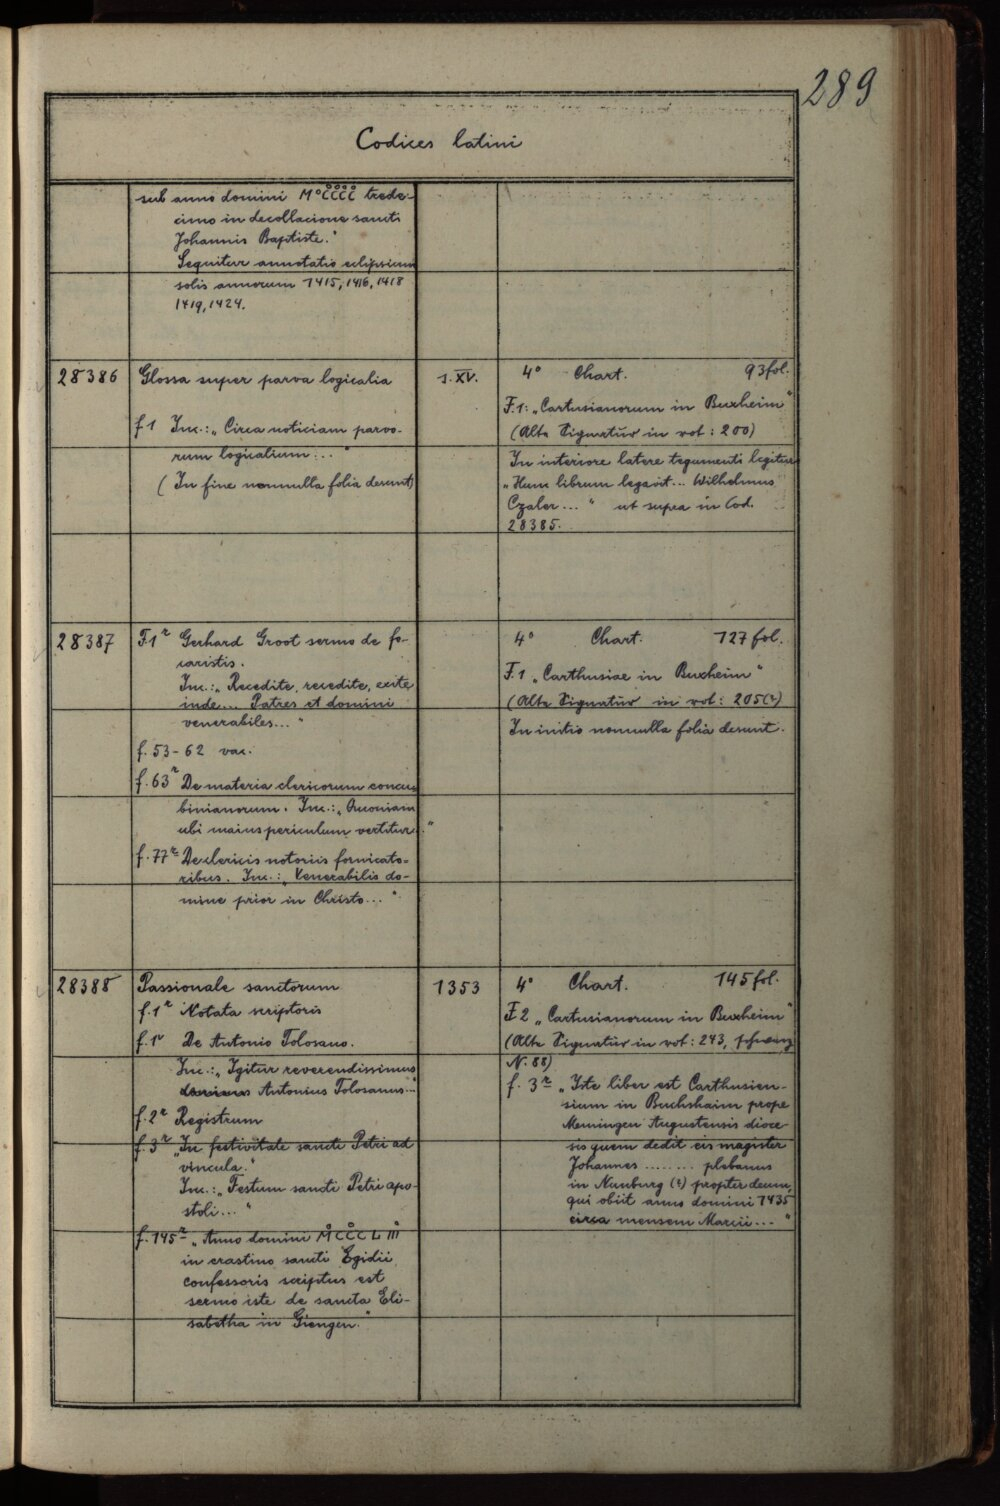 289
Codices latini
sub anno domini M°C̊C̊C̊C̊ trede-
cimo in decollacione sancti
Johannis Baptiste."
Sequitur annotatio eclipsium
solis annorum 1415, 1416, 1418
1419, 1424.
28386
Glossa super parva logicalia
f 1 Inc.: „Circa noticiam parvo-
rum logicalium: ... "
( In fine nonnulla folia desunt)
s. XV.
4° Chart. 93 fol.
F. 1: „Cartusianorum in Buxheim"
(Alte Signatur in rot: 200)
In interiore latere tegumenti legitur
„Hunc librum legavit ... Wilhelmus
Czaler ... " ut supra in Cod.
28385.
28387
F. 1r Gerhard Groot sermo de fo-
caristis.
Inc.: „Recedite, recedite, exite
inde ... Patres et domini
venerabiles ... "
f. 53 - 62 vac.
f. 63r De materia clericorum concu-
binianorum. Inc.: „Quoniam
ubi maius periculum vertitur ."
f. 77r De clericis notoriis fornicato-
ribus. Inc.: „Venerabilis do-
mine prior in Christo ... "
4° Chart. 127 fol.
F. 1 „Carthusiae in Buxheim"
(Alte Signatur in rot: 205(?)
In initio nonnulla folia desunt.
28388
Passionale sanctorum
f. 1r Notata scriptoris
f. 1v De Antonio Tolosano.
Inc.: „Igitur reverendissimus
Antonius Tolosanus ..."
f. 2r Registrum
f. 3r „In festivitate sancti Petri ad
vincula."
Inc.: „Festum sancti Petri apo-
stoli ... "
f. 145r „Anno domini M̊C̊C̊C̊ L III
in crastino sancti Egidii
confessoris scriptus est
sermo iste de sancta Eli-
sabetha in Giengen."
1353
4° Chart. 145 fol.
F 2 „Cartusianorum in Buxheim"
(Alte Signatur in rot: 243, schwarz
N. 88)
f. 3r „Iste liber est Carthusien-
sium in Buchshaim prope
Memingen Augustensis dioce-
sis quem dedit eis magister
Johannes ........ plebanus
in Nunburg (?) propter deum,
qui obiit anno domini 1435
circa mensem Marcii ... "